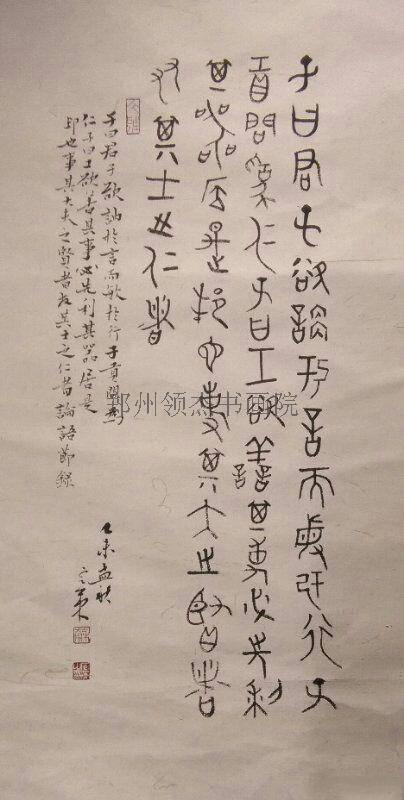 子曰君子欲訥於言而敏於行子
貢問為仁子曰工欲善其事必先利
其器居是邦也事其大夫之賢者
友其士之仁者
子曰君子欲訥於言而敏於行子貢問為
仁子曰工欲善其事必先利其器居是
邦也事其大夫之賢者友其士之仁者論語節錄
乙未孟秋
郑州领杰书画院